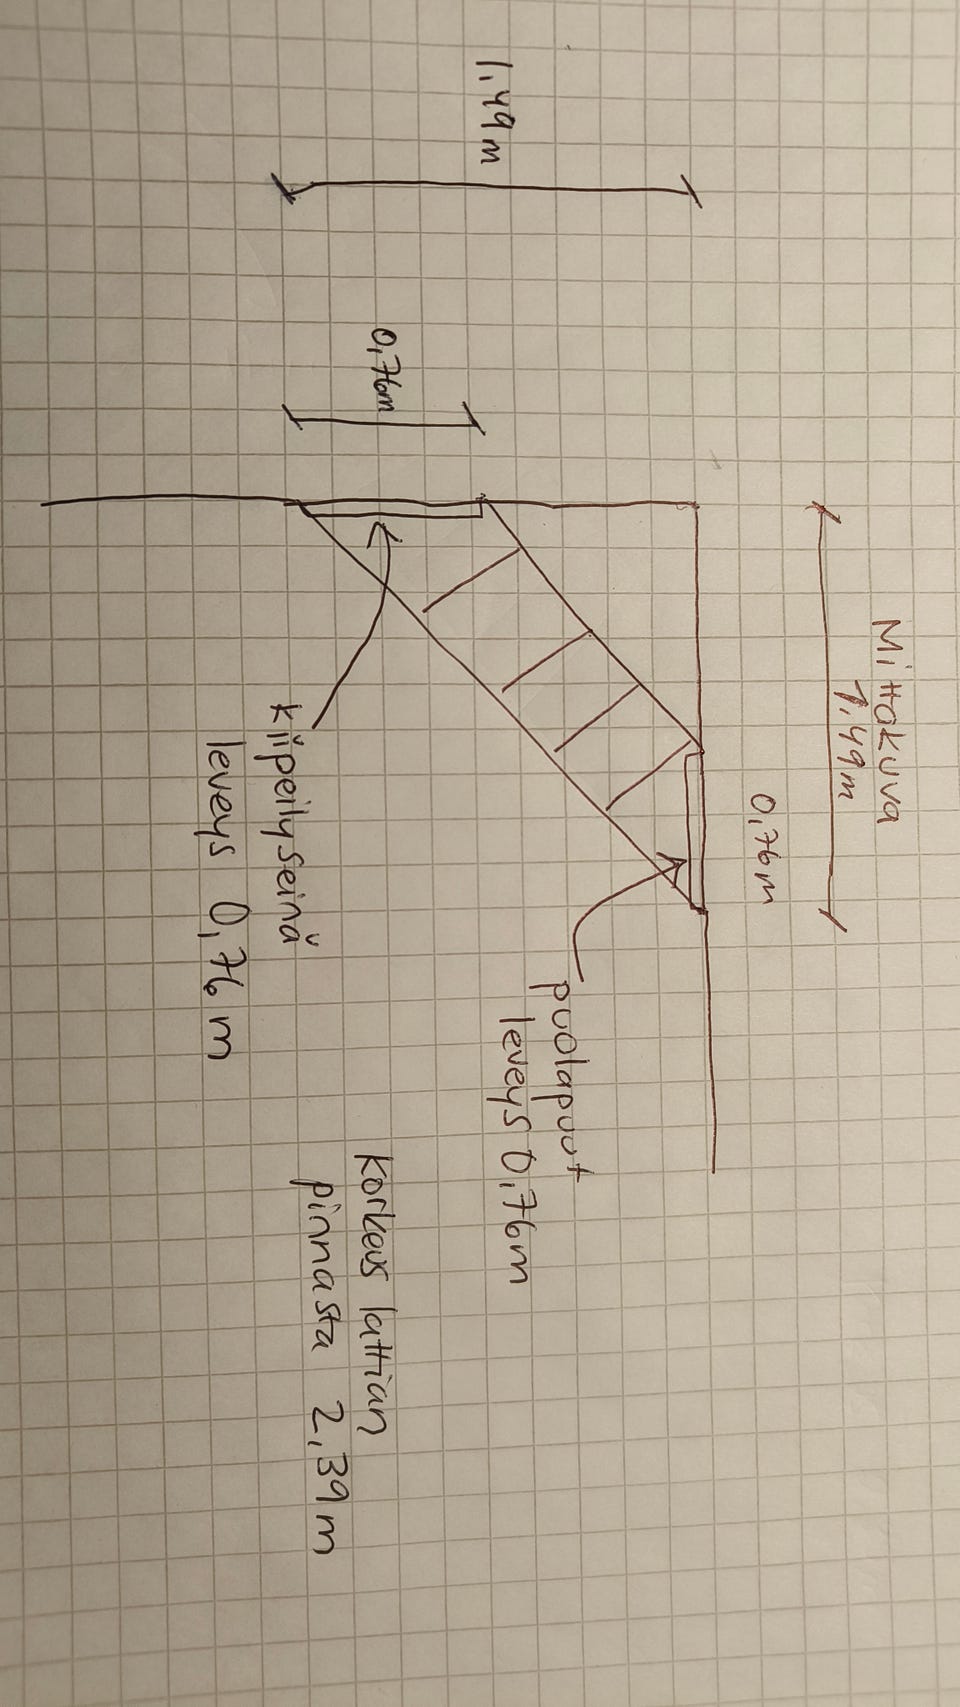 Mittakuva
1,49m
0,76m
1,49m
0,76m
puolapuut
leveys 0,76m
kiipeilyseinä
leveys 0,76 m
Korkeus lattian
pinnasta 2,39m